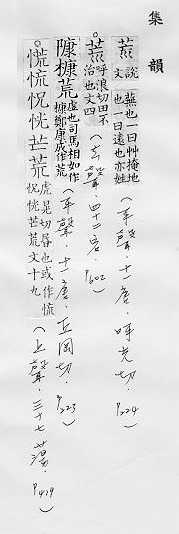 集韻
荒 說文蕪也一曰艸掩地也一曰遠也亦姓（平聲．十一唐．呼光切．P224）
。荒 呼浪切田不治也文四（去聲．四十二宕．P602）
槺荒 虛也司馬相如作槺鄭康成作荒（平聲．十一唐．丘岡切．P223）
。慌怳恍芒荒 虎晃切昬也或作慌怳恍芒荒文十九（上聲．三十七蕩．P419）